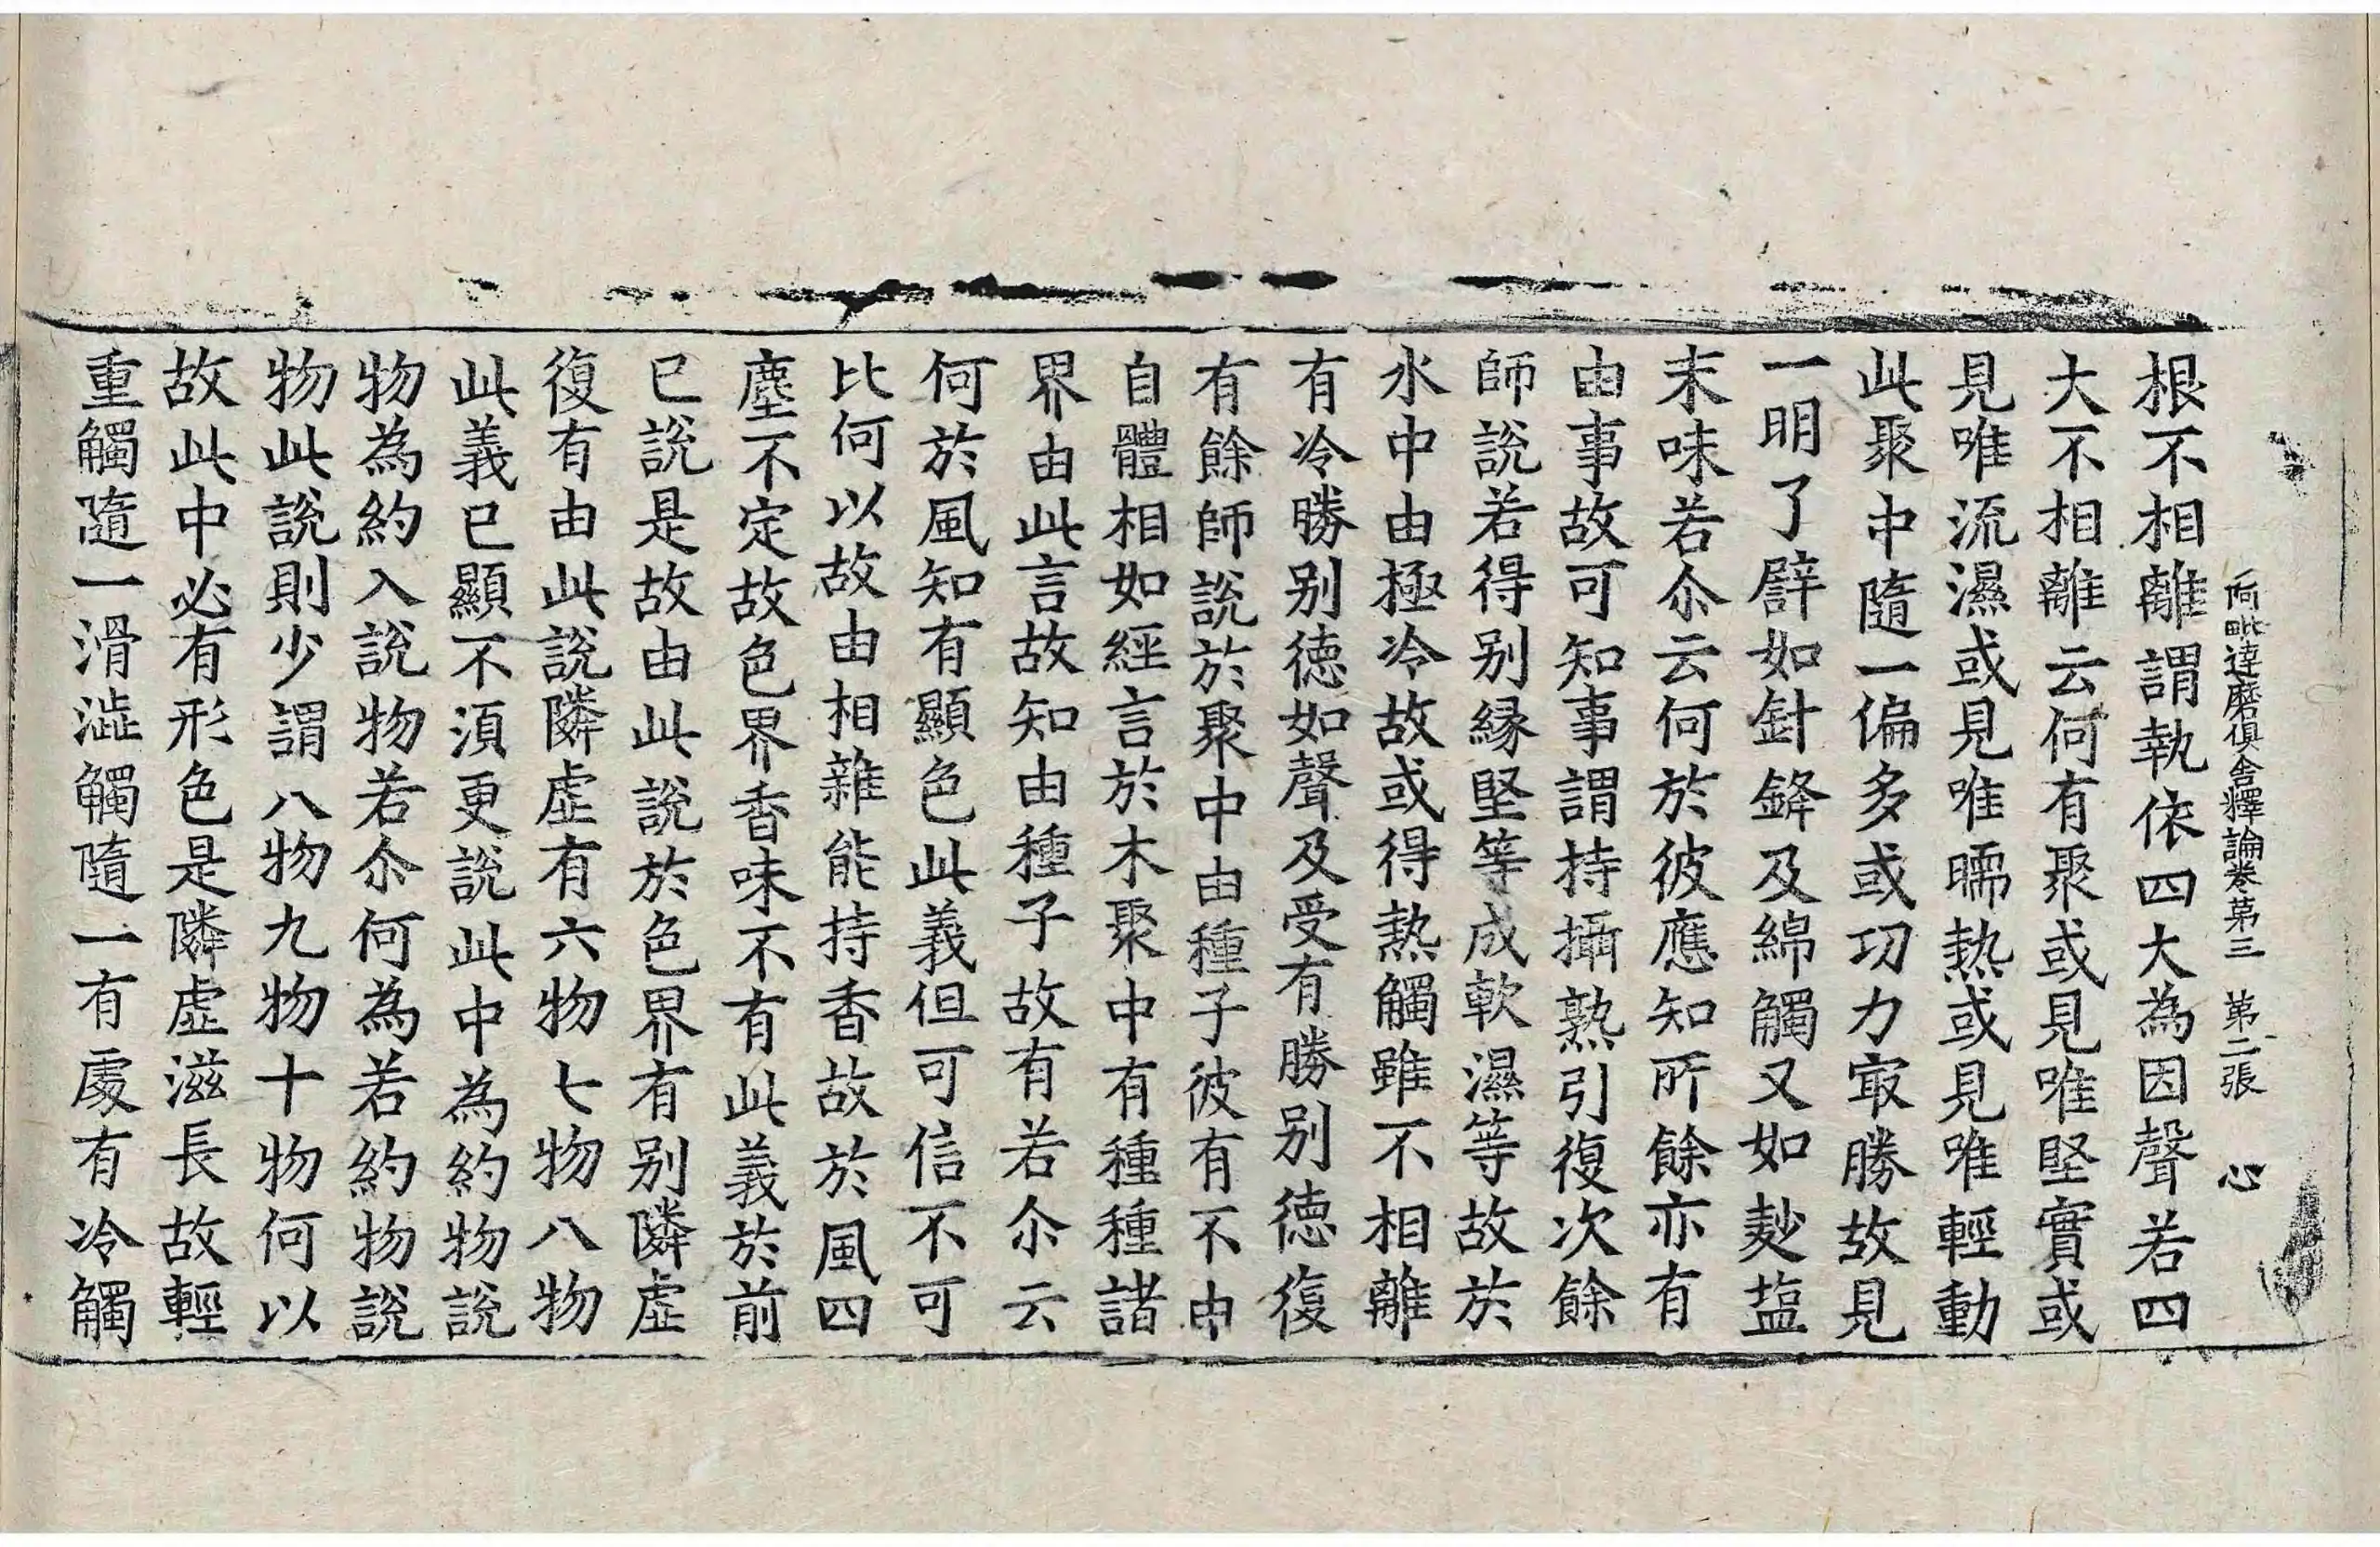 阿毗達磨俱舍釋論卷第三　第二張　心
根不相離謂執依四大為因聲若四
大不相離云何有聚或見唯堅實或
見唯流濕或見唯㬉熱或見唯輕動
此聚中隨一偏多或功力㝡勝故見
一明了譬如針鋒及綿觸又如麨塩
末味若尒云何於彼應知所餘亦有
由事故可知事謂持攝熟引復次餘
師說若得别緣堅等成軟濕等故於
水中由極冷故或得熱觸雖不相離
有冷勝别德如聲及受有勝别德復
有餘師說於聚中由種子彼有不由
自體相如經言於木聚中有種種諸
界由此言故知由種子故有若尒云
何於風知有顯色此義但可信不可
比何以故由相雜能持香故於風四
塵不定故色界香味不有此義於前
已說是故由此說於色界有别隣虛
復有由此說隣虛有六物七物八物
此義已顯不須更說此中為約物說
物為約入說物若尒何為若約物說
物此說則少謂八物九物十物何以
故此中必有形色是隣虛滋長故輕
重觸隨一滑澁觸隨一有處有冷觸